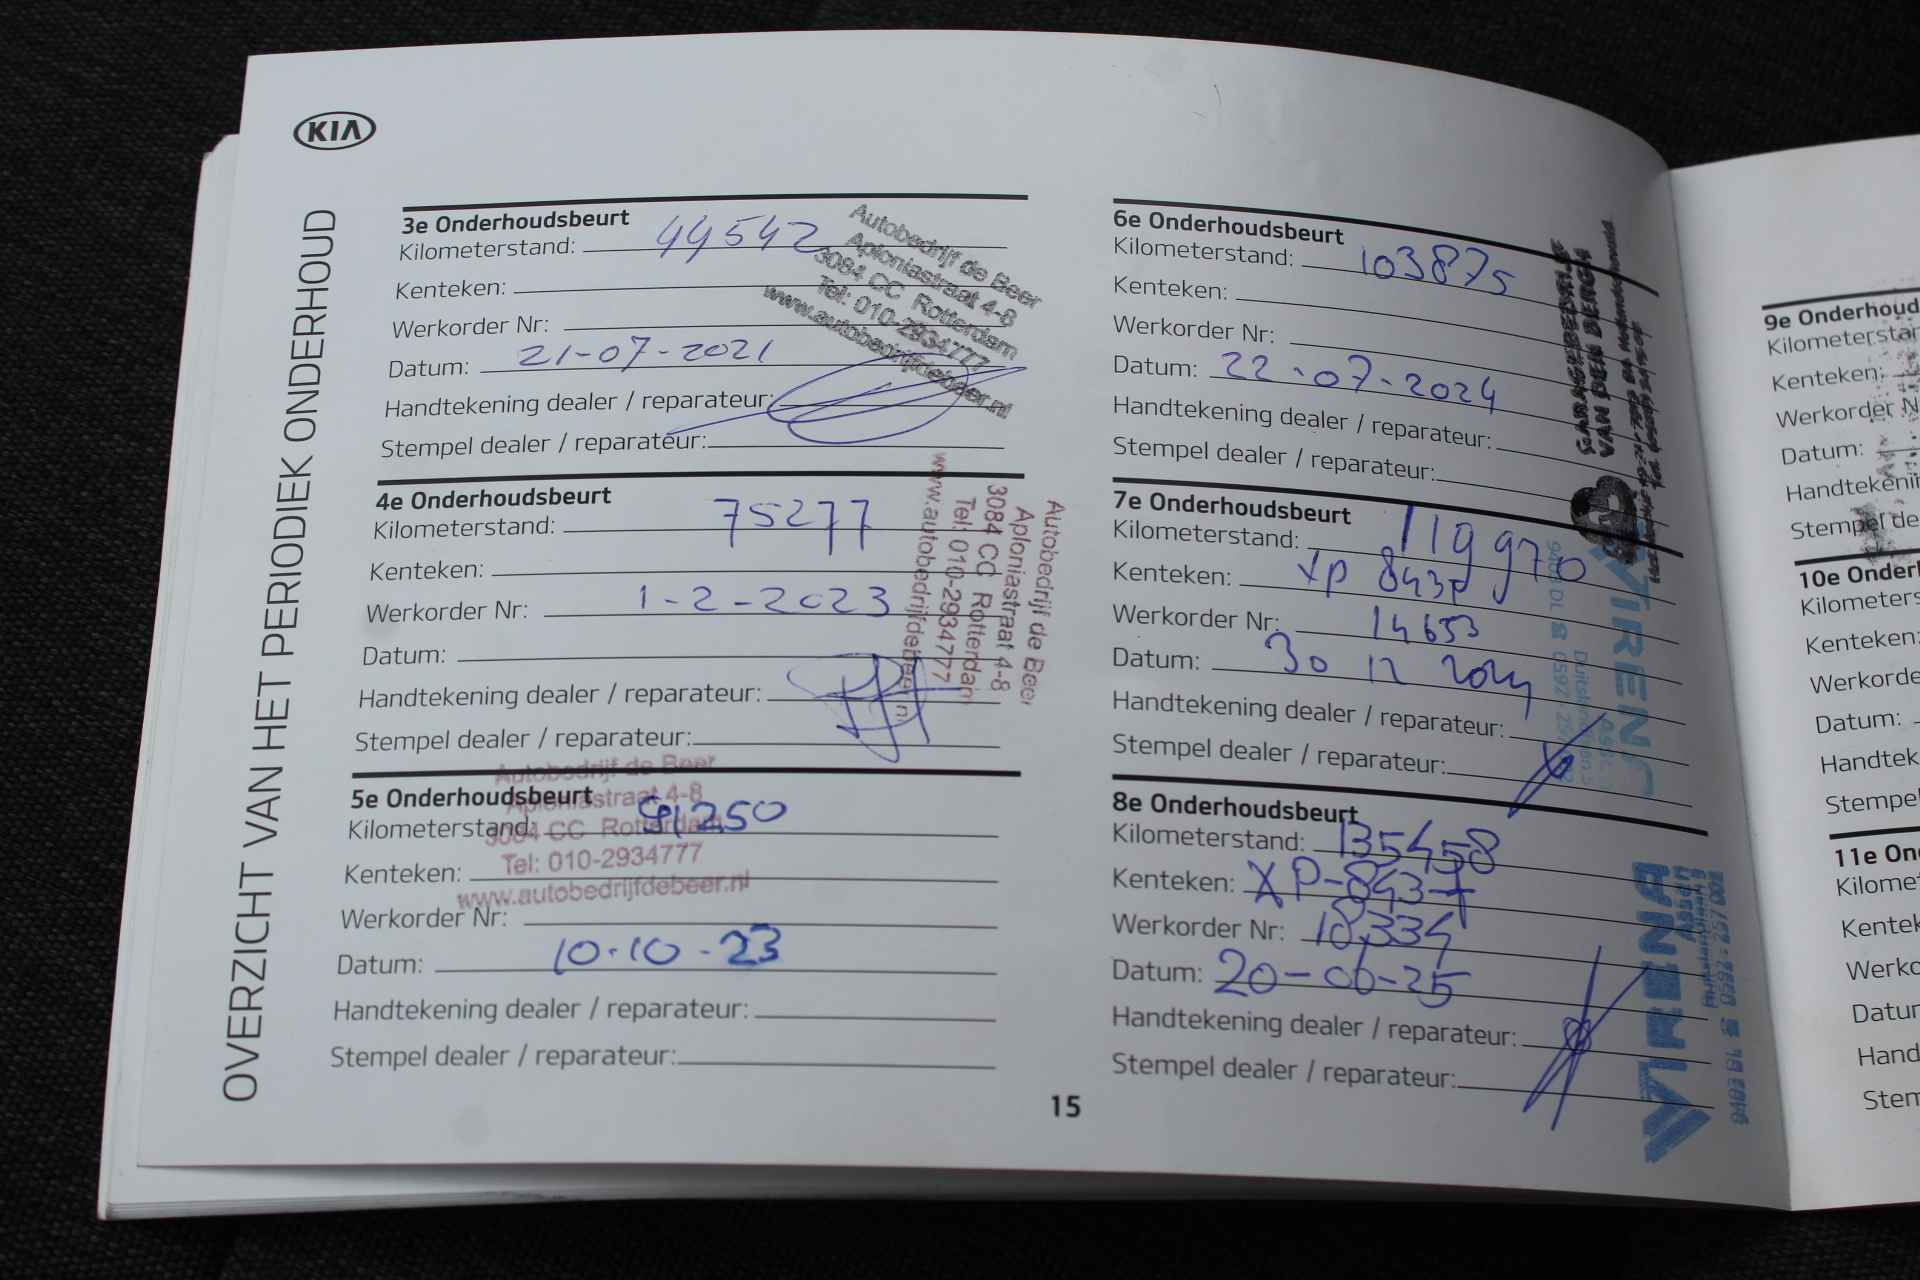 KIA
OVERZICHT VAN HET PERIODIEK ONDERHOUD
3e Onderhoudsbeurt
Kilometerstand: 44542
Kenteken:
Werkorder Nr:
Datum: 21-07-2021
Handtekening dealer / reparateur:
Stempel dealer / reparateur:
Autobedrijf de Beer
Aploniastraat 4-8
3084 CC Rotterdam
Tel: 010-2934777
www.autobedrijfdebeer.nl
4e Onderhoudsbeurt
Kilometerstand: 75277
Kenteken:
Werkorder Nr: 1-2-2023
Datum:
Handtekening dealer / reparateur:
Stempel dealer / reparateur:
Autobedrijf de Beer
Aploniastraat 4-8
3084 CC Rotterdam
Tel: 010-2934777
www.autobedrijfdebeer.nl
5e Onderhoudsbeurt
Kilometerstand: 91250
Kenteken:
Werkorder Nr:
Datum: 10-10-23
Handtekening dealer / reparateur:
Stempel dealer / reparateur:
Autobedrijf de Beer
Aploniastraat 4-8
3084 CC Rotterdam
Tel: 010-2934777
www.autobedrijfdebeer.nl
6e Onderhoudsbeurt
Kilometerstand: 103875
Kenteken:
Werkorder Nr:
Datum: 22-07-2024
Handtekening dealer / reparateur:
Stempel dealer / reparateur:
GARAGEBEDRIJF
VAN DEN BERGH
7e Onderhoudsbeurt
Kilometerstand: 119970
Kenteken: XP 843
Werkorder Nr: 14653
Datum: 30 12 2024
Handtekening dealer / reparateur:
Stempel dealer / reparateur:
8e Onderhoudsbeurt
Kilometerstand: 135458
Kenteken: XP-843-
Werkorder Nr: 18334
Datum: 20-06-25
Handtekening dealer / reparateur:
Stempel dealer / reparateur:
15
9e Onderhoud
Kilometerstan
Kenteken:
Werkorder N
Datum:
Handtekenin
Stempel de
10e Onderh
Kilometers
Kenteken:
Werkorde
Datum:
Handtek
Stempel
11e On
Kilomet
Kentek
Werko
Datur
Hand
Stem